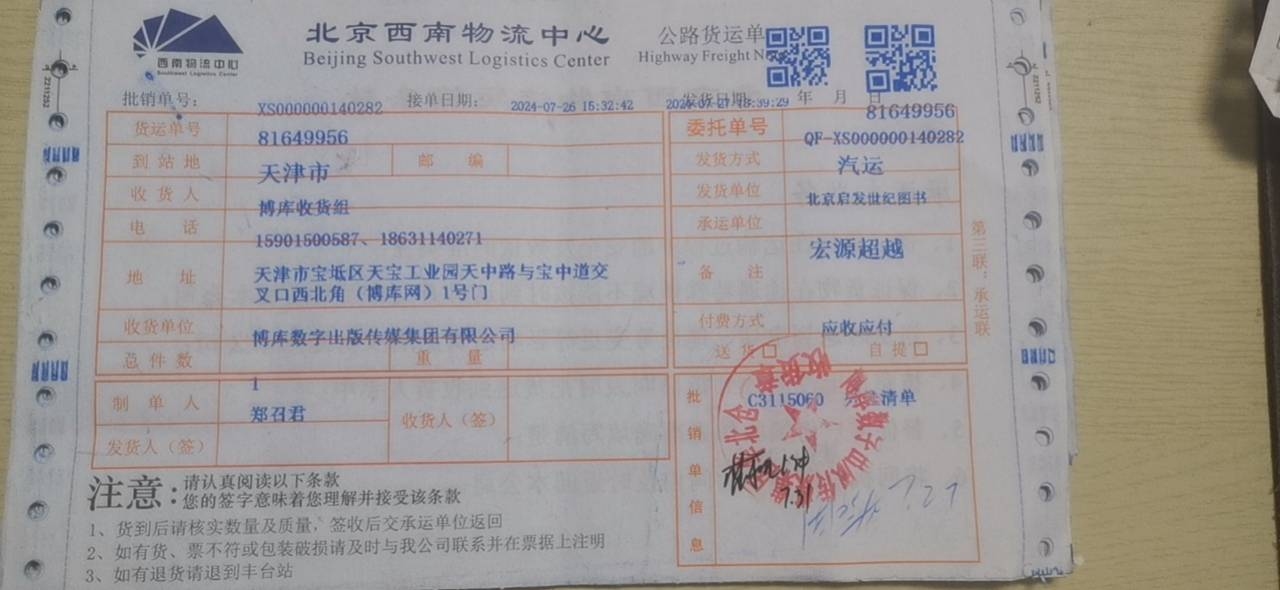 西南物流中心
Southwest Logistics Center
北京西南物流中心
Beijing Southwest Logistics Center
公路货运单
Highway Freight
批销单号： XS000000140282 接单日期： 2024-07-26 15:32:42 发货日期 年 月 日
81649956
货运单号 81649956
委托单号 QF-XS000000140282
到站地 天津市 邮编
发货方式 汽运
收货人 博库收货组
发货单位 北京启发世纪图书
电话 15901500587、18631140271
承运单位 宏源超越
地址 天津市宝坻区天宝工业园天中路与宝中道交
叉口西北角（博库网）1号门
备注
收货单位 博库数字出版传媒集团有限公司
付费方式 应收应付
总件数 1 重量
送货□ 自提□
制单人 郑召君 收货人（签）
发货人（签）
批销单信息 C3115060 清单
收货章
7.31
第三联：承运联
注意：请认真阅读以下条款
您的签字意味着您理解并接受该条款
1、货到后请核实数量及质量，签收后交承运单位返回
2、如有货、票不符或包装破损请及时与我公司联系并在票据上注明
3、如有退货请退到丰台站